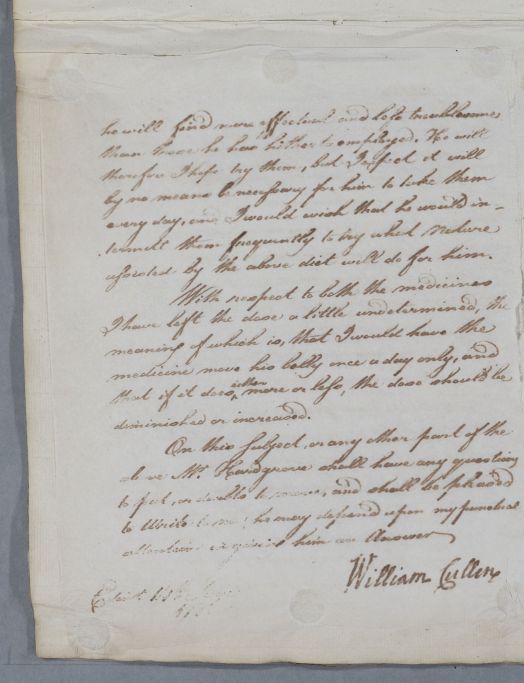 he will find more effectual and less troublesome
than those he has hitherto employed. He will
therefore I hope try them, but I expect it will
by no means be necessary for him to take them
every day, and I would wish that he would in-
termitt them frequently to try what Nature
assisted by the above diet will do for him.
With respect to both the medicines
I have left the dose a little undetermined, the
meaning of which is, that I would have the
medicine move his belly once a day only, and
that if it does either more or less, the dose should be
diminished or increased.
On this Subject, or any other part of the
above Mr. Hardgrove shall have any question
to put, or doubts to remove, and shall be pleased
to Write to me; he may depend upon my punctual
attention in giving him an Answer
William Cullen
Edinr.